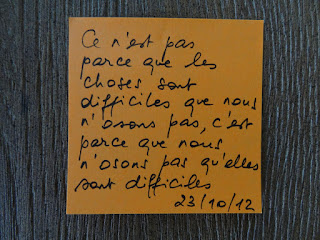 Ce n'est pas
parce que les
choses sont
difficiles que nous
n'osons pas, c'est
parce que nous
n'osons pas qu'elles
sont difficiles
23/10/12